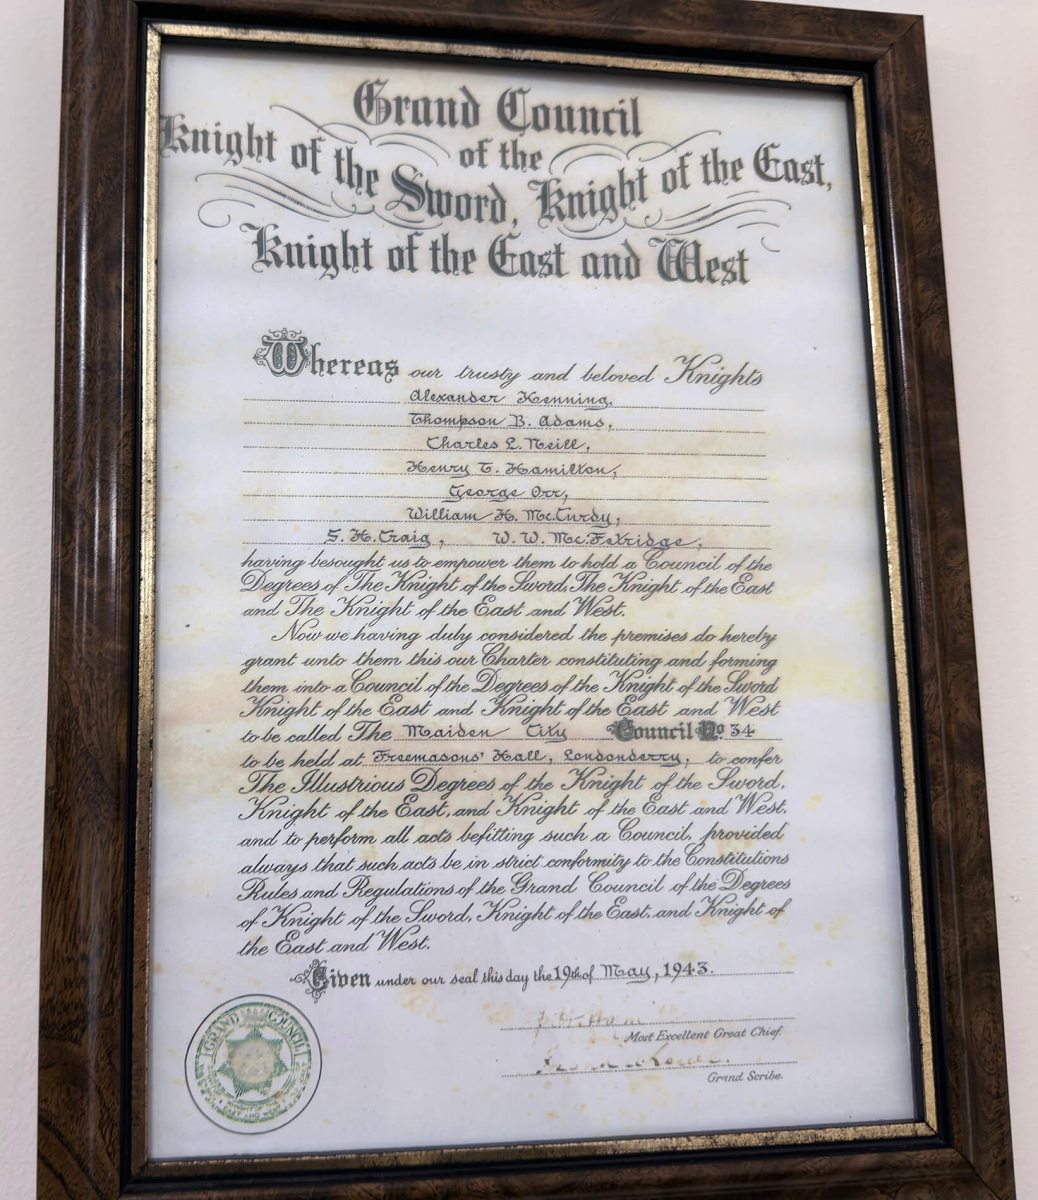 Grand Council
of the
Knight of the Sword, Knight of the East,
Knight of the East and West
Whereas our trusty and beloved Knights
Alexander Henning,
Thompson B. Adams,
Charles L. Neill,
Henry T. Hamilton,
George Orr,
William H. McCurdy,
S. H. Craig, W. W. McFetridge,
having besought us to empower them to hold a Council of the
Degrees of The Knight of the Sword, The Knight of the East
and The Knight of the East and West.
Now we having duly considered the premises do hereby
grant unto them this our Charter constituting and forming
them into a Council of the Degrees of the Knight of the Sword
Knight of the East and Knight of the East and West
to be called The Maiden City Council No. 34
to be held at Freemasons' Hall, Londonderry, to confer
The Illustrious Degrees of the Knight of the Sword,
Knight of the East, and Knight of the East and West.
and to perform all acts befitting such a Council, provided
always that such acts be in strict conformity to the Constitutions
Rules and Regulations of the Grand Council of the Degrees
of Knight of the Sword, Knight of the East, and Knight of
the East and West.
Given under our seal this day the 19th of May, 1943.
Most Excellent Great Chief.
Grand Scribe.
GRAND COUNCIL
EAST AND WEST